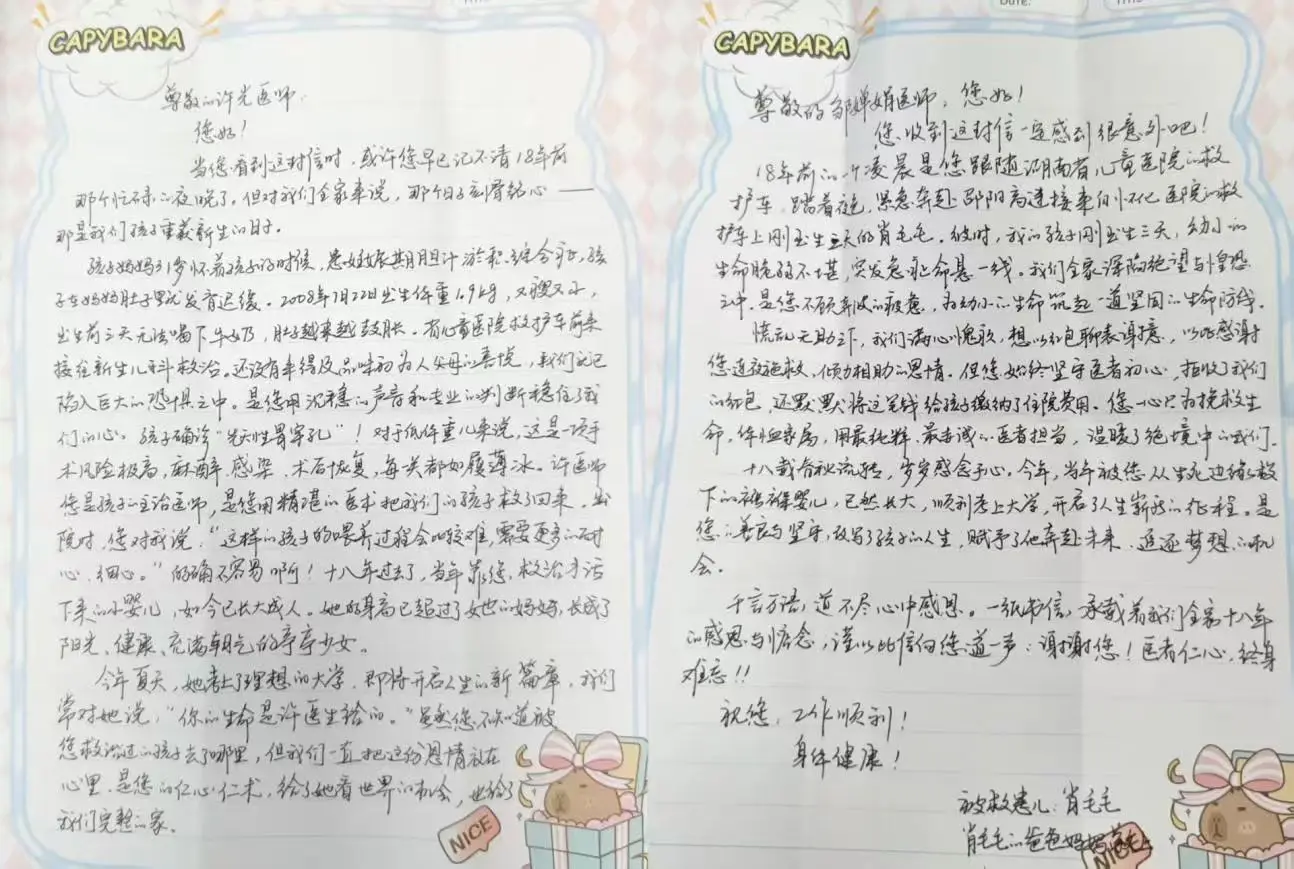 CAPYBARA
尊敬的许光医师.
您好!
当您看到这封信时,或许您早已记不清18年前
那个忙碌的夜晚了。但对我们全家来说,那个日子刻骨铭心——
那是我们孩子重获新生的日子.
孩子妈妈31岁怀着孩子的时候,患妊娠期胆汁淤积综合症,孩
子在妈妈肚子里就发育迟缓。2008年7月22日出生体重1.9kg,又瘦又小,
出生前三天无法喝下牛奶,肚子越来越鼓胀。省儿童医院救护车前来
接往新生儿科救治。还没有来得及品味初为人父母的喜悦,我们就已
陷入巨大的恐惧之中。是您用沉稳的声音和专业的判断稳住了我
们的心。孩子确诊"先天性胃穿孔"!对于低体重儿来说,这是一项手
术风险极高,麻醉.感染、术后恢复,每关都如履薄冰。许医师
您是孩子的主治医师,是您用精湛的医术把我们的孩子救了回来。出
院时,您对我说,"这样的孩子的喂养过程会比较难,需要更多的耐
心、细心。"的确不容易啊!十八年过去了,当年靠您救治才活
下来的小婴儿,如今已长大成人。她的身高已超过了她的妈妈,长成了
阳光、健康、充满朝气的亭亭少女。
今年夏天,她考上了理想的大学,即将开启人生的新篇章,我们
常对她说,"你的生命是许医生给的。"虽然您不知道被
您救治过的孩子去了哪里,但我们一直把这份恩情放在
心里.是您的仁心仁术,给了她看世界的机会,也给了
我们完整的家。
NICE
Date:
CAPYBARA
尊敬的邹婵娟医师,您好!
您收到这封信一定感到很意外吧!
18年前的一个凌晨是您跟随湖南省儿童医院的救
护车,踏着夜色,紧急奔赴邵阳高速接来自怀化医院的救
护车上刚出生三天的肖毛毛。彼时,我的孩子刚出生三天,幼小的
生命脆弱不堪,突发急症命悬一线。我们全家深陷绝望与惶恐
之中.是您不顾奔波的疲惫,为幼小的生命筑起一道坚固的生命防线.
慌乱无助之下,我们满心愧歉,想以红包聊表谢意,以此感谢
您连夜施救,倾力相助的恩情.但您始终坚守医者初心,拒收了我们
的红包,还默默将这笔钱给孩子缴纳了住院费用。您一心只为挽救生
命,体恤家属,用最纯粹.最赤诚的医者担当,温暖了绝境中的我们.
十八载春秋流转,岁岁感念于心.今年,当年被您从生死边缘救
下的襁褓婴儿,已然长大,顺利考上大学,开启了人生崭新的征程。是
您的善良与坚守,改写了孩子的人生,赋予了他奔赴未来、追逐梦想的机
会.
千言万语,道不尽心中感恩。一纸书信,承载着我们全家十八年
的感恩与惦念,谨以此信向您道一声:谢谢您!医者仁心,终身
难忘!!
祝您,工作顺利!
身体健康!
被救患儿:肖毛毛
肖毛毛的爸爸妈妈
NICE